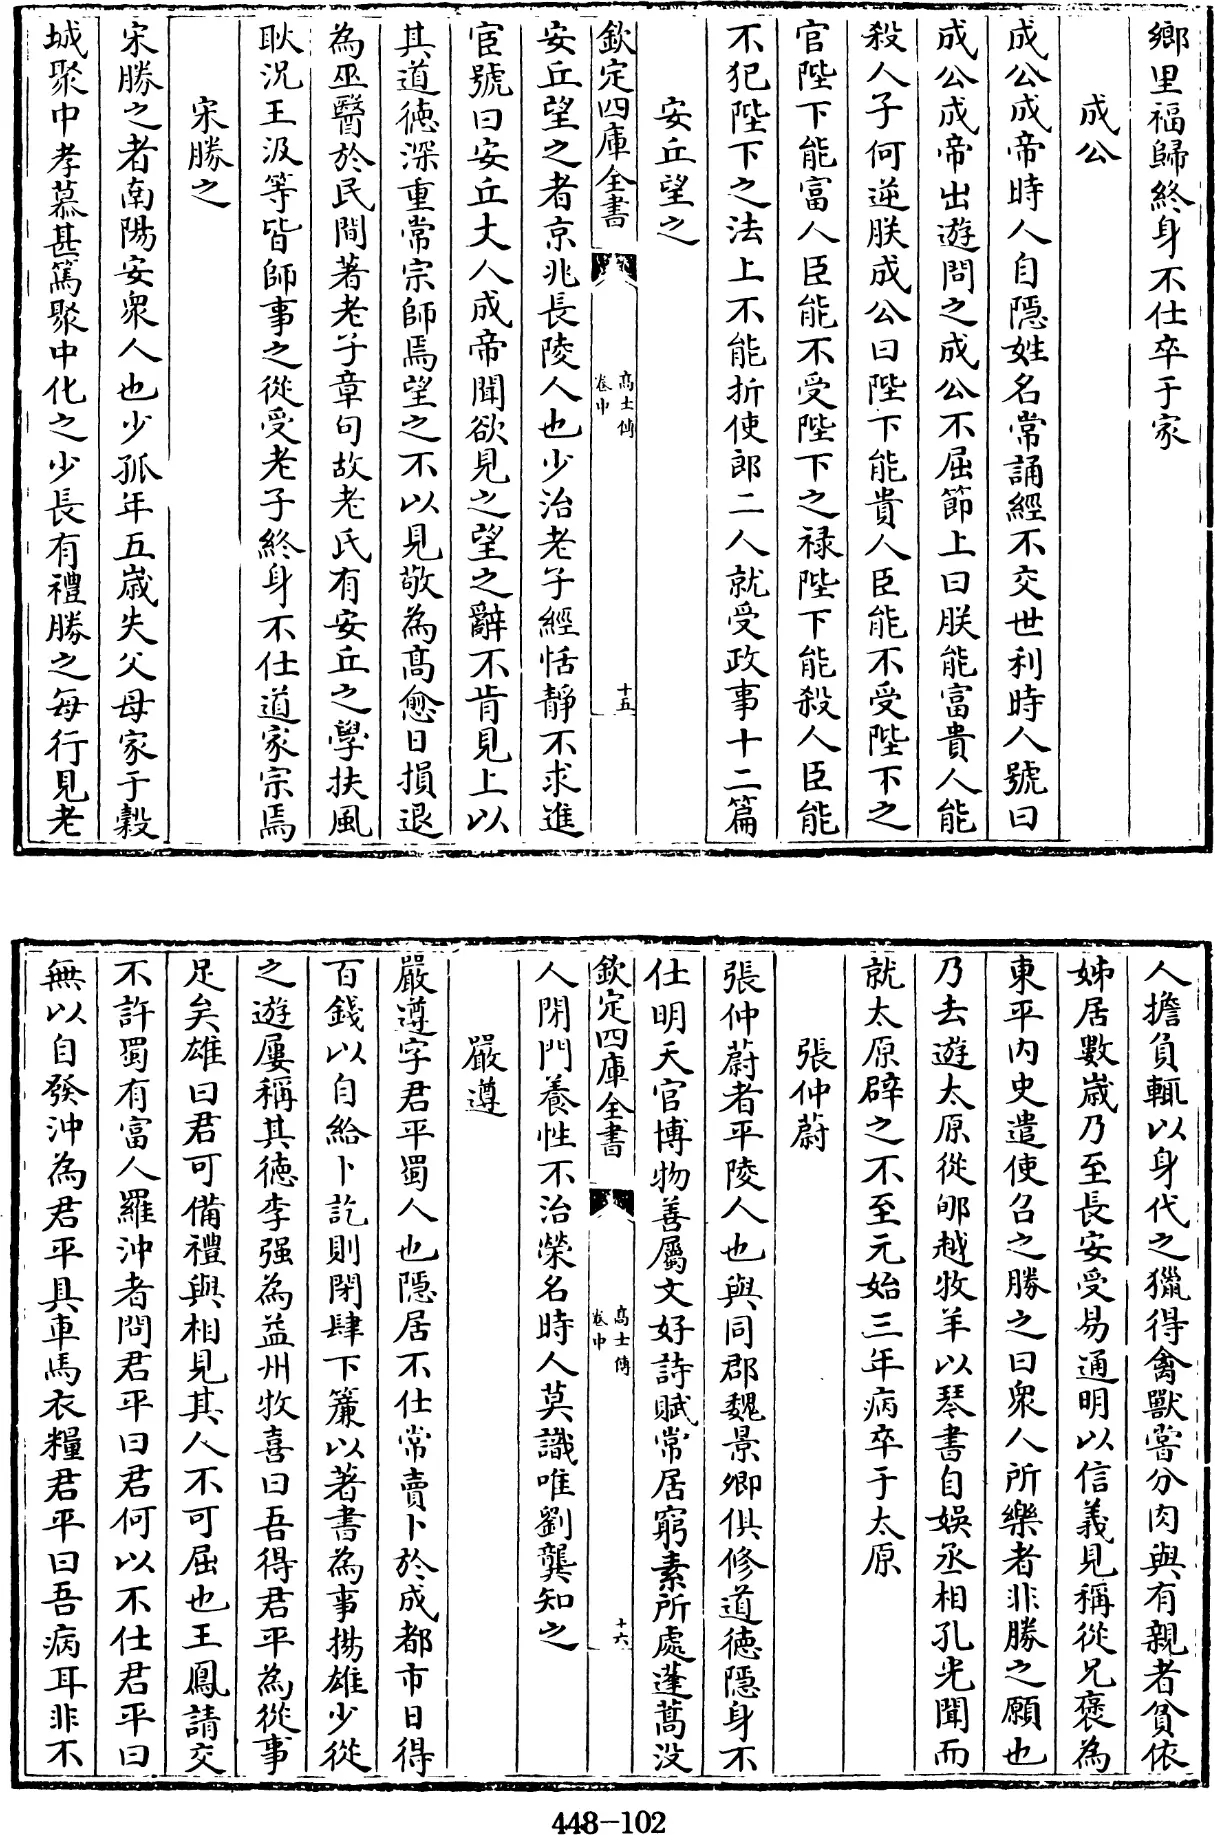 鄉里福歸終身不仕卒于家
成公
成公成帝時人自隱姓名常誦經不交世利時人號曰
成公成帝出遊問之成公不屈節上曰朕能富貴人能
殺人子何逆朕成公曰陛下能貴人臣能不受陛下之
官陛下能富人臣能不受陛下之禄陛下能殺人臣能
不犯陛下之法上不能折使郎二人就受政事十二篇
安丘望之
欽定四庫全書
髙士傳
卷中
十五
安丘望之者京兆長陵人也少治老子經恬靜不求進
宦號曰安丘丈人成帝聞欲見之望之辭不肯見上以
其道徳深重常宗師焉望之不以見敬為髙愈日損退
為巫醫於民間著老子章句故老氏有安丘之學扶風
耿况王汲等皆師事之從受老子終身不仕道家宗焉
宋勝之
宋勝之者南陽安衆人也少孤年五歲失父母家于穀
城聚中孝慕甚篤聚中化之少長有禮勝之每行見老
人擔負輒以身代之獵得禽獸嘗分肉與有親者貧依
姊居數歲乃至長安受易通明以信義見稱從兄褒為
東平内史遣使召之勝之曰衆人所樂者非勝之願也
乃去遊太原從郇越牧羊以琴書自娱丞相孔光聞而
就太原辟之不至元始三年病卒于太原
張仲蔚
張仲蔚者平陵人也與同郡魏景卿俱修道徳隱身不
仕明天官博物善屬文好詩賦常居窮素所處蓬蒿没
欽定四庫全書
髙士傳
卷中
十六
人閉門養性不治榮名時人莫識唯劉龔知之
嚴遵
嚴遵字君平蜀人也隱居不仕常賣卜於成都市日得
百錢以自給卜訖則閉肆下簾以著書為事揚雄少從
之遊屢稱其徳李强為益州牧喜曰吾得君平為從事
足矣雄曰君可備禮與相見其人不可屈也王鳳請交
不許蜀有富人羅沖者問君平曰君何以不仕君平曰
無以自發沖為君平具車馬衣糧君平曰吾病耳非不
448-102